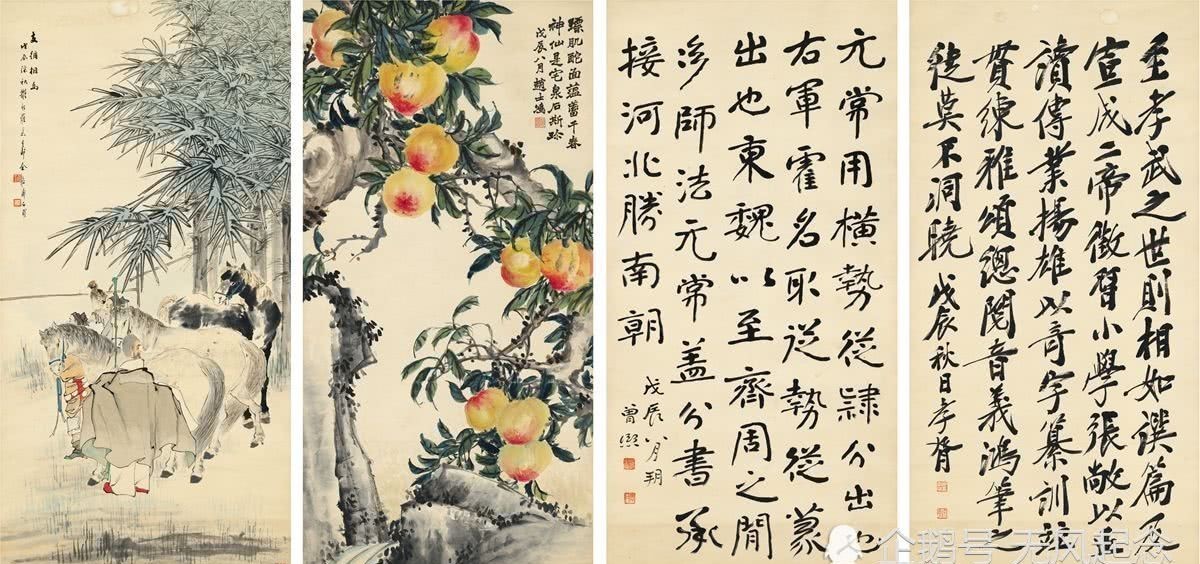 支遁相馬
肌酡面蘊蕾千春
神仙是宅泉石斯珍
戊辰八月趙士鴻
元常用橫勢從隸分出也
右軍霍名取從勢從篆
出也東魏以至齊周之間
師法元常蓋分書承
接河北勝南朝
戊辰八月朔
曾熙
至孝武之世則相如譔篇及
宣成二帝徵習小學張敞以正
讀傳業揚雄以奇字纂訓竝
貫練雅頌總閱音義鴻筆之
徒莫不洞曉 戊辰秋日孝胥
企鹅号 无风起念